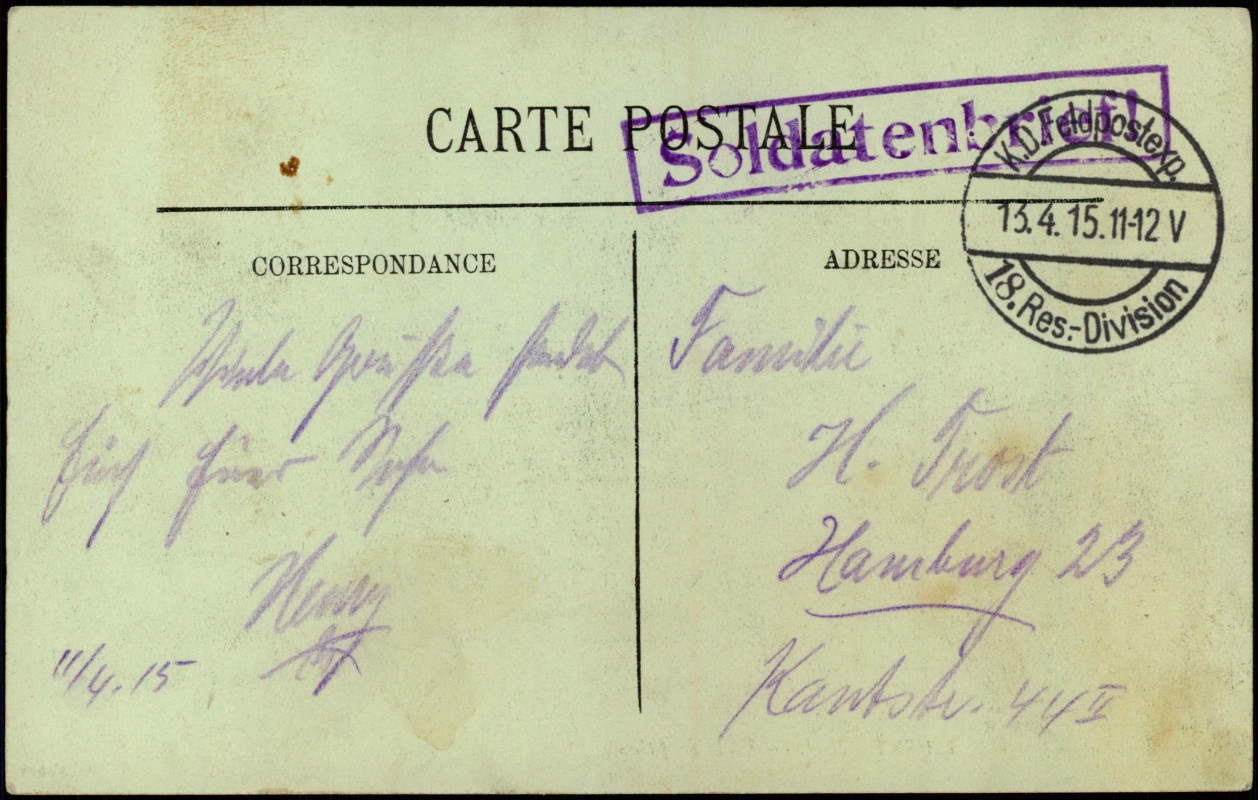 CARTE POSTALE
Soldatenbrief!
K.D. Feldpostexp.
13.4.15.11-12 V
18. Res.-Division
CORRESPONDANCE
Viele Grüße sendet
Euch Euer Sohn
Henry
11/4.15
ADRESSE
Familie
H. Trost
Hamburg 23
Kantstr. 44 II